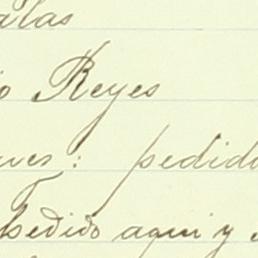 alas
o Reyes
ves: pedido
pedido aqui y